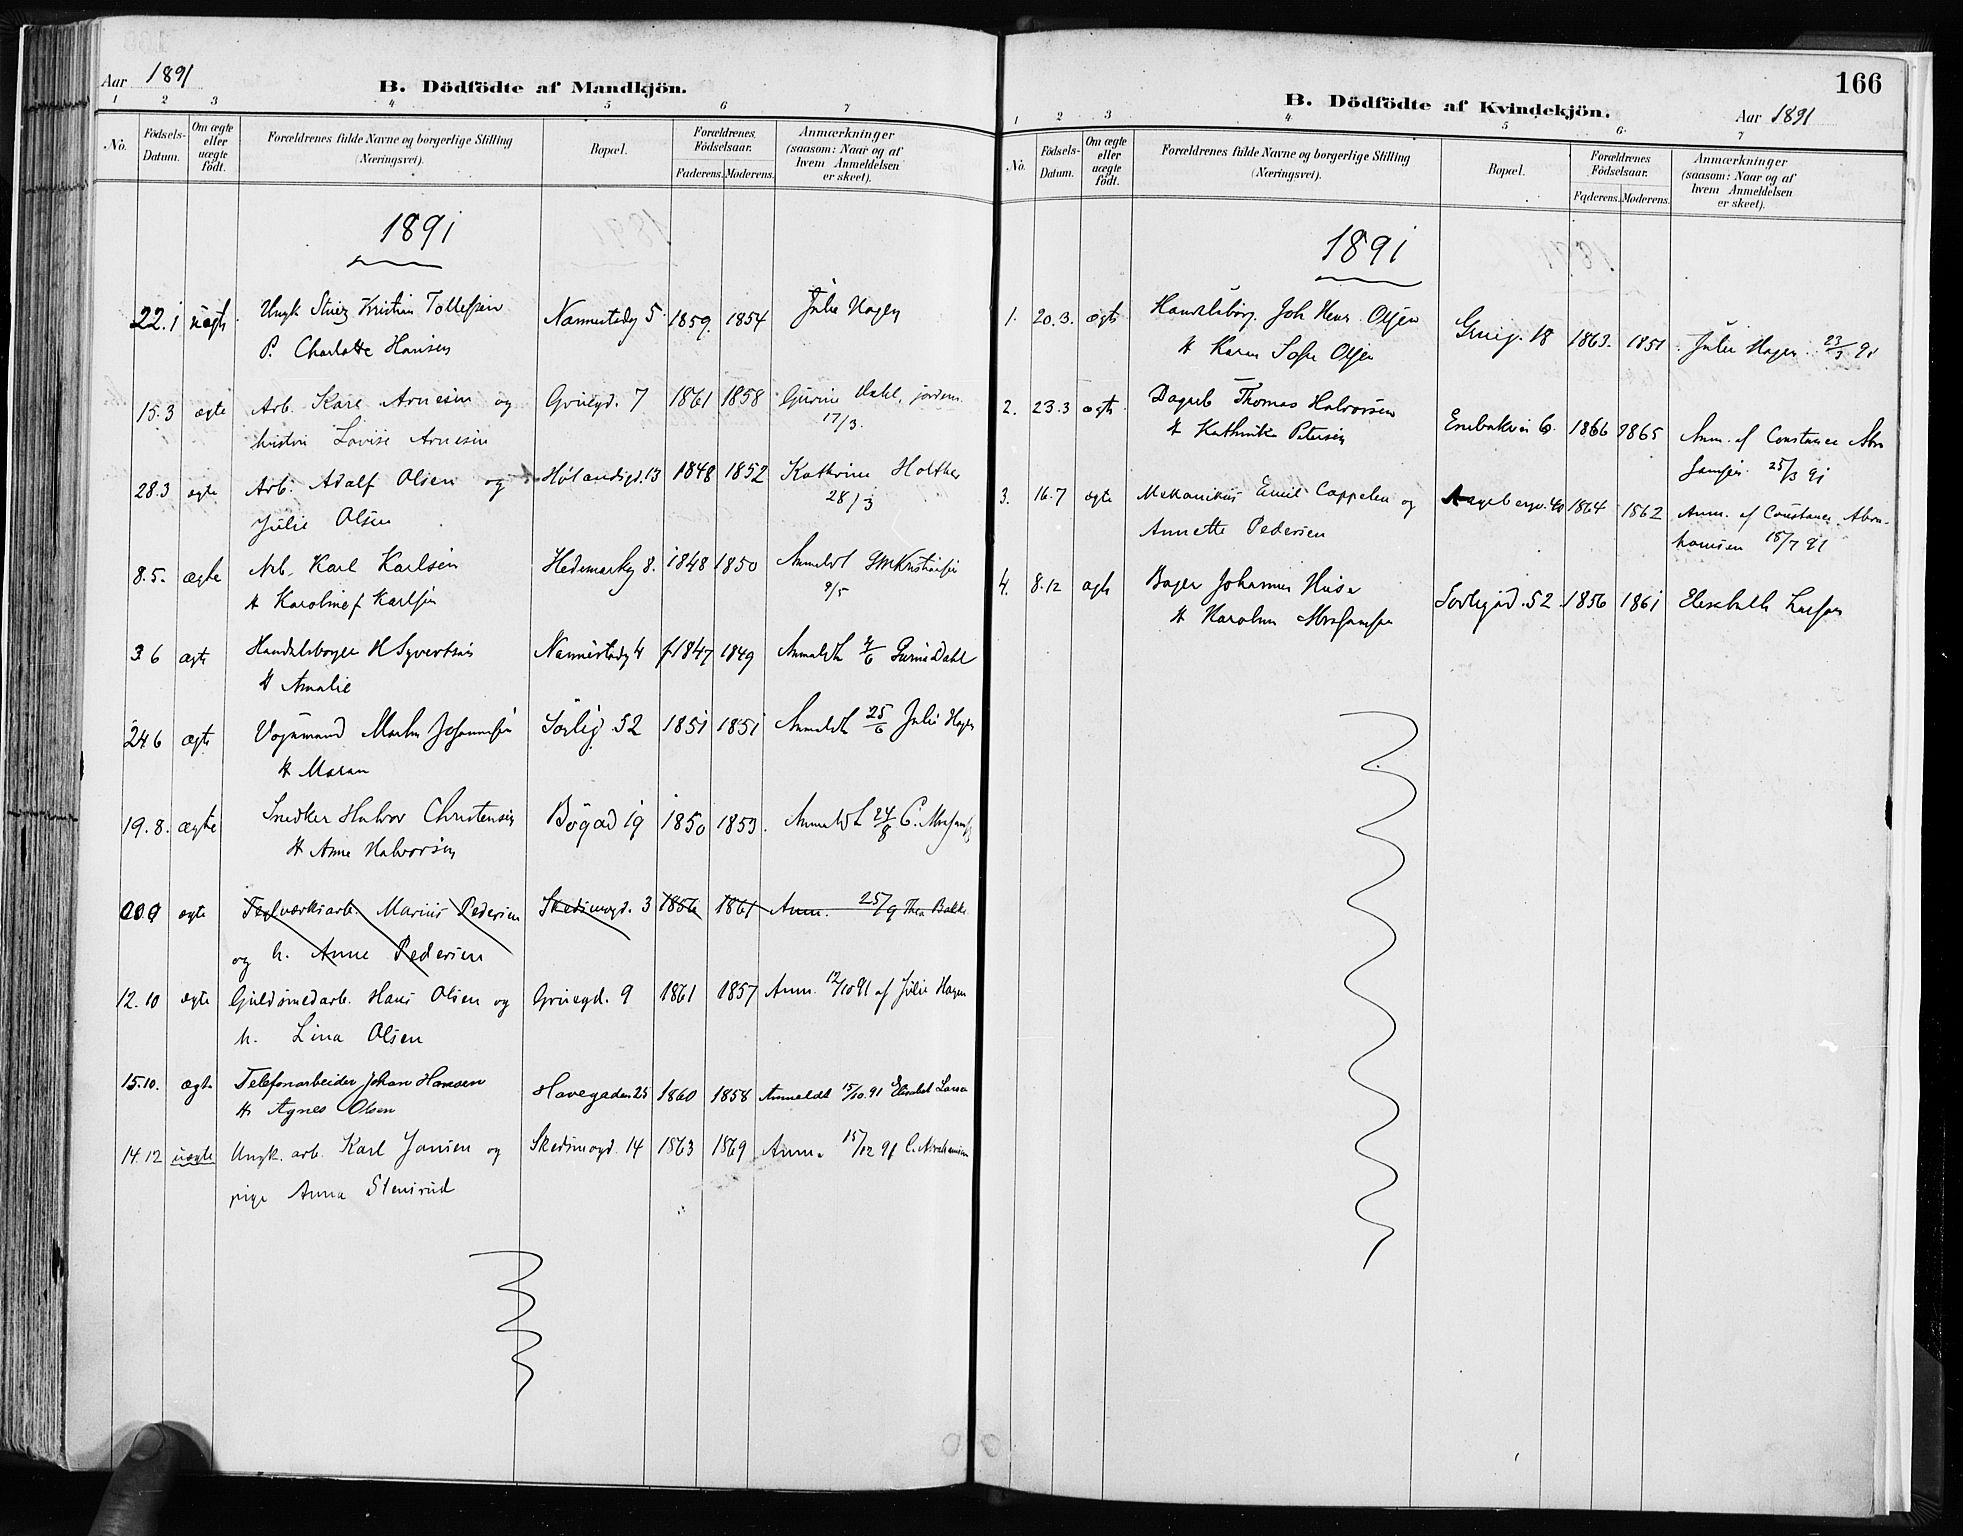 Aar 1891
B. Dödfödte af Mandkjön.
1 2 3 4 5 6 7
No. Födsels-Datum. Om ægte eller uægte födt. Forældrenes fulde Navne og borgerlige Stilling (Næringsvei). Bopæl. Forældrenes Födselsaar. Faderens. Moderens. Anmærkninger (saasom: Naar og af hvem Anmeldelsen er skeet).
1891
22.1 uægte Ungk Kristin Tollefsen Nannestadg 5 1859. 1854 Julie Hagen
P. Charlotte Hansen
15.3 ægte Arb. Karl Arnesen og Gruegd. 7 1861 1858 Gurine Dahl, jordem.
hustru Lovise Arnesen 17/3.
28.3 ægte Arb. Adolf Olsen og Hølandsgd. 13 1848 1852 Kathrine Holther
Julie Olsen 28/3
8.5. ægte Arb. Karl Karlsen Hedemarkg 8. 1848 1850 Anmeldt
H Karoline Karlsen 9/5
3 6 ægte Handelsborger H Syvertsen Nannestadg 4 1847 1849 Anmeldt 4/6 Gurine Dahl
H Amalie
24 6 ægte Vognmand Martin Johannesen Sörlig 52 1851 1851 Anmeldt 25/6 Julie Hagen
H Maren
19.8. ægte Snedker Halvor Christensen Bögad 19 1850 1853. Anmeldt 24/8 C.
H Anne Halvorsen
20.9 ægte Teglværksarb. Marius Pedersen Skedsmogd. 3 1856 1861 Anm. 25/9 Thea Bakke
og h. Anne Pedersen
12.10 ægte Guldsmedarb. Hans Olsen og Gruegd. 9 1861 1857 Anm. 12/10 91 af Julie Hagen
h. Lina Olsen
15.10. ægte Telefonarbeider Johan Hansen Havegaden 25 1860 1858 Anmeldt 15/10.91 Elisabet Larsen
H. Agnes Olsen
14.12 uægte Ungk. arb. Karl Jansen og Skedsmogd. 14 1863 1869 Anm. 15/12 91 C. Abrahamsen
pige Anna Stensrud
166
B. Dödfödte af Kvindekjön.
Aar 1891
1 2 3 4 5 6. 7
No. Födsels-Datum. Om ægte eller uægte födt. Forældrenes fulde Navne og borgerlige Stilling (Næringsvei). Bopæl. Forældrenes Födselsaar. Faderens. Moderens. Anmærkninger (saasom: Naar og af hvem Anmeldelsen er skeet).
1891
1. 20.3. ægte Handelsborg. Joh Henr. Olsen Grueg. 18 1863. 1851 Julie Hagen 23/3 91
H Karen Sofie Olsen
2. 23.3 ægte Thomas Halvorsen Enebakvei 6. 1866 1865 Anm. af Constance Abra
H Kathinka Petersen hamsen. 25/3 91
3. 16.7 ægte Mekanikus Emil Cappelen og 1864 1862 Anm. af Constance Abra-
Annette Pedersen hamsen 18/7 91
4. 8.12 ægte Bager Johannes Huse Sorligad. 52 1856 1861 Elisabeth Larsen
H Karoline Abrahamsen